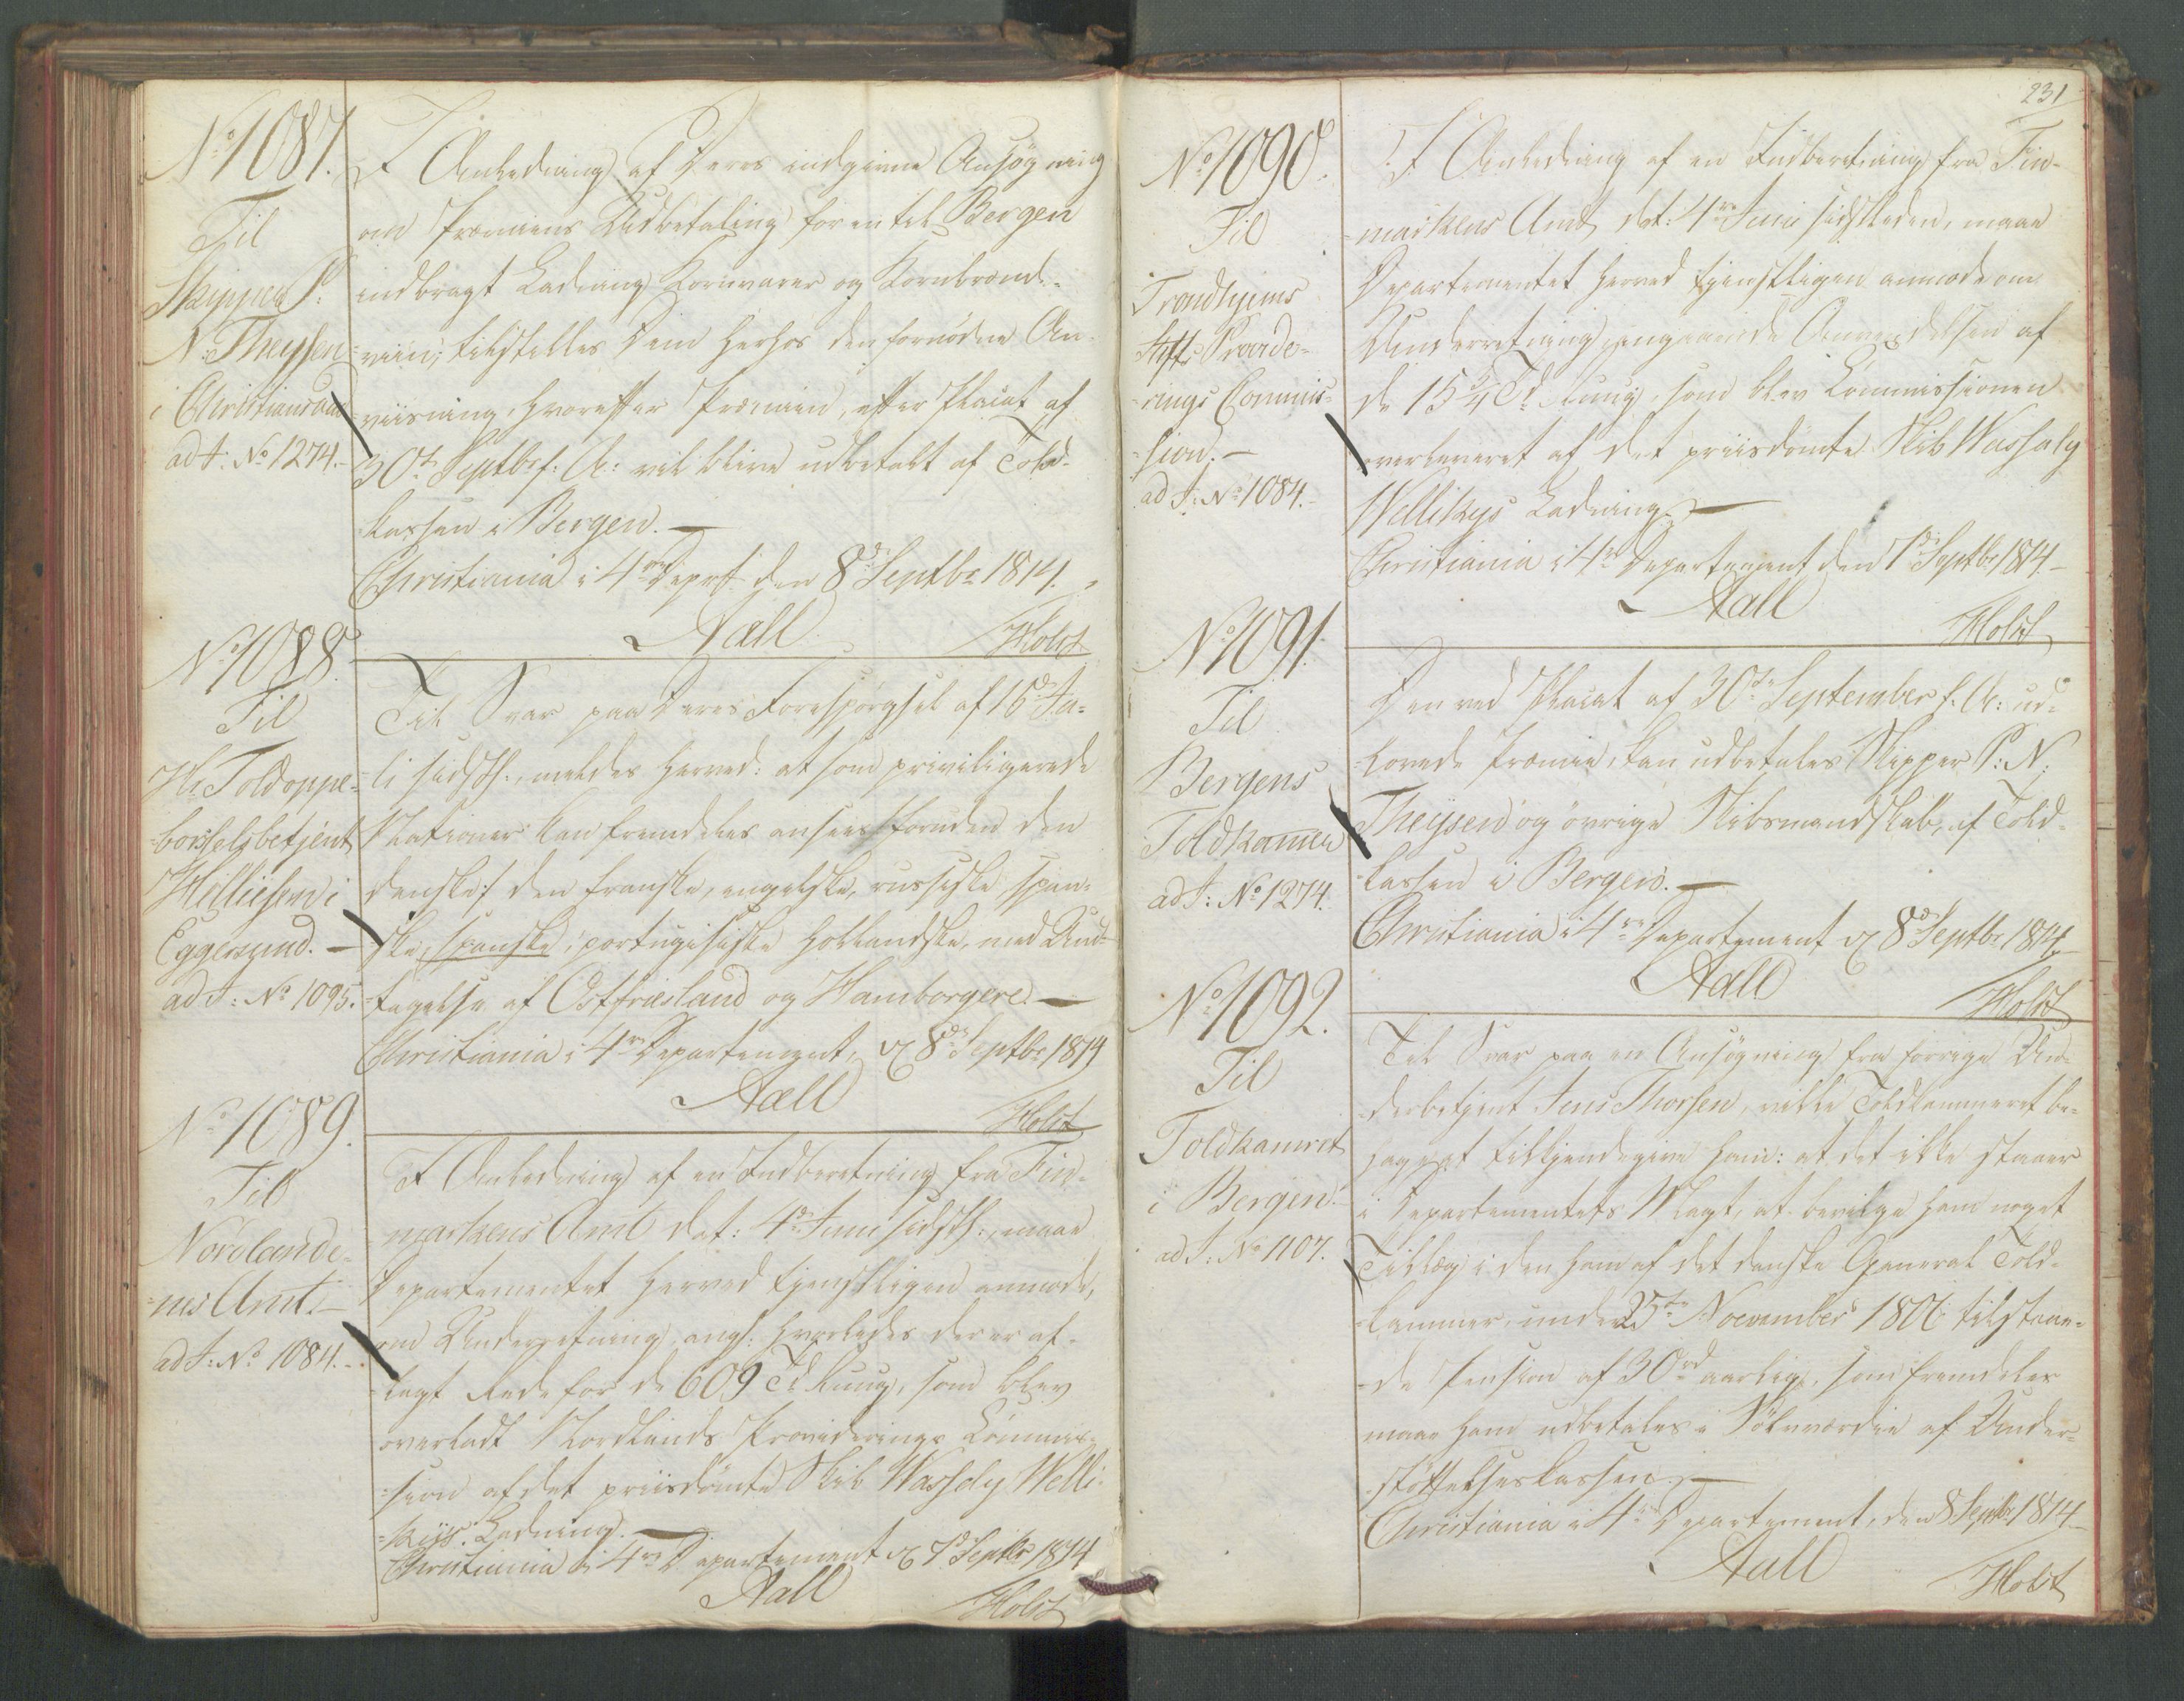 No 1087.
Til
Skipper P:
N: Theysen
i Christiansand
ad J: No 1274.
I Anledning af Deres indgivne Ansøgning
om Præmiens Udbetaling for en til Bergen
indbragt Ladning Kornvarer og Kornbrænde-
viin, tilstilles Dem herhos den fornødne An-
viisning, hvorefter Præmien, efter Placat af
30te Septbr f: A: vil blive udbetalt af Told-
kassen i Bergen.
Christiania i 4de Dept den 8de Septbr 1814.
Aall
Holst
No 1088.
Til
Hr Toldoppe-
børselsbetjent
i
Eggersund.
ad J: No 1095.
Til Svar paa Deres Forespørgsel af 16de Ju-
li sidstl:, meldes herved: at som priviligerede
Nationer kan fremdeles ansees /:foruden den
danske:/ den franske, engelske, russiske span-
ske, spanske, portugisiske hollandske, med Und-
tagelse af Ostfriesland og Hamborgere.
Christiania i 4de Departement, d 8de Septbr 1814
Aall
Holst
No 1089.
Til
Nordlande-
nes Amt.
ad J: No 1084.
I Anledning af en Indberetning fra Fin-
markens Amt dat: 4de Juni sidstl:, maae
Departementet herved tjenstligen anmode,
om Underretning, ang: hvorledes der er af-
lagt Rede for de 609 Td Ruug, som blev
overladt Nordlands Provideringe Commis-
sion af det priisdømte Skib Wassely Welli-
kys Ladning.
Christiania i 4de Departement d 7de Septbr 1814
Aall
Holst
231
No 1090.
Til
Trondhjems
Stifts Provide-
rings Commis-
sion.
ad J: No 1084.
I Anledning af en Indberetning fra Fin-
markens Amt, dat: 4de Juni sidstleden, maae
Departementet herved tjenstligen anmode om
Underretning angaaende Anvendelsen af
de 15 3/4 Td Ruug, som blev Commissionen
overleveret af det priisdømte Skib Wassaly
Wellikys Ladning.
Christiania i 4de Departement den 7de Septbr 1814.
Aall
Holst
No 1091.
Til
Bergens
Toldkammer
ad J: No 1274.
Den ved Placat af 30te September f: A: ud-
lovede Præmie, kan udbetales Skipper P: N:
Theysen og øvrige Skibsmandskab, af Told-
kassen i Bergen.
Christiania i 4de Departement d 8de Septbr 1814
Aall
Holst
No 1092.
Til
Toldkamret
i Bergen.
ad J: No 1107.
Til Svar paa en Ansøgning fra forrige Un-
derbetjent Jens Thorsen, ville Toldkammeret be-
hageligst tilkjendegive ham: at det ikke staaer
i Departementets Magt, at bevilge ham noget
Tillæg i den ham af det danske General Told-
kammer, under 25de November 1806 tilstaae-
de Pension af 30 rd aarlig, som fremdeles
maae ham udbetales i Sølvværdie af Under-
støttelseskassen.
Christiania i 4de Departement, den 8 Septbr 1814
Aall
Holst